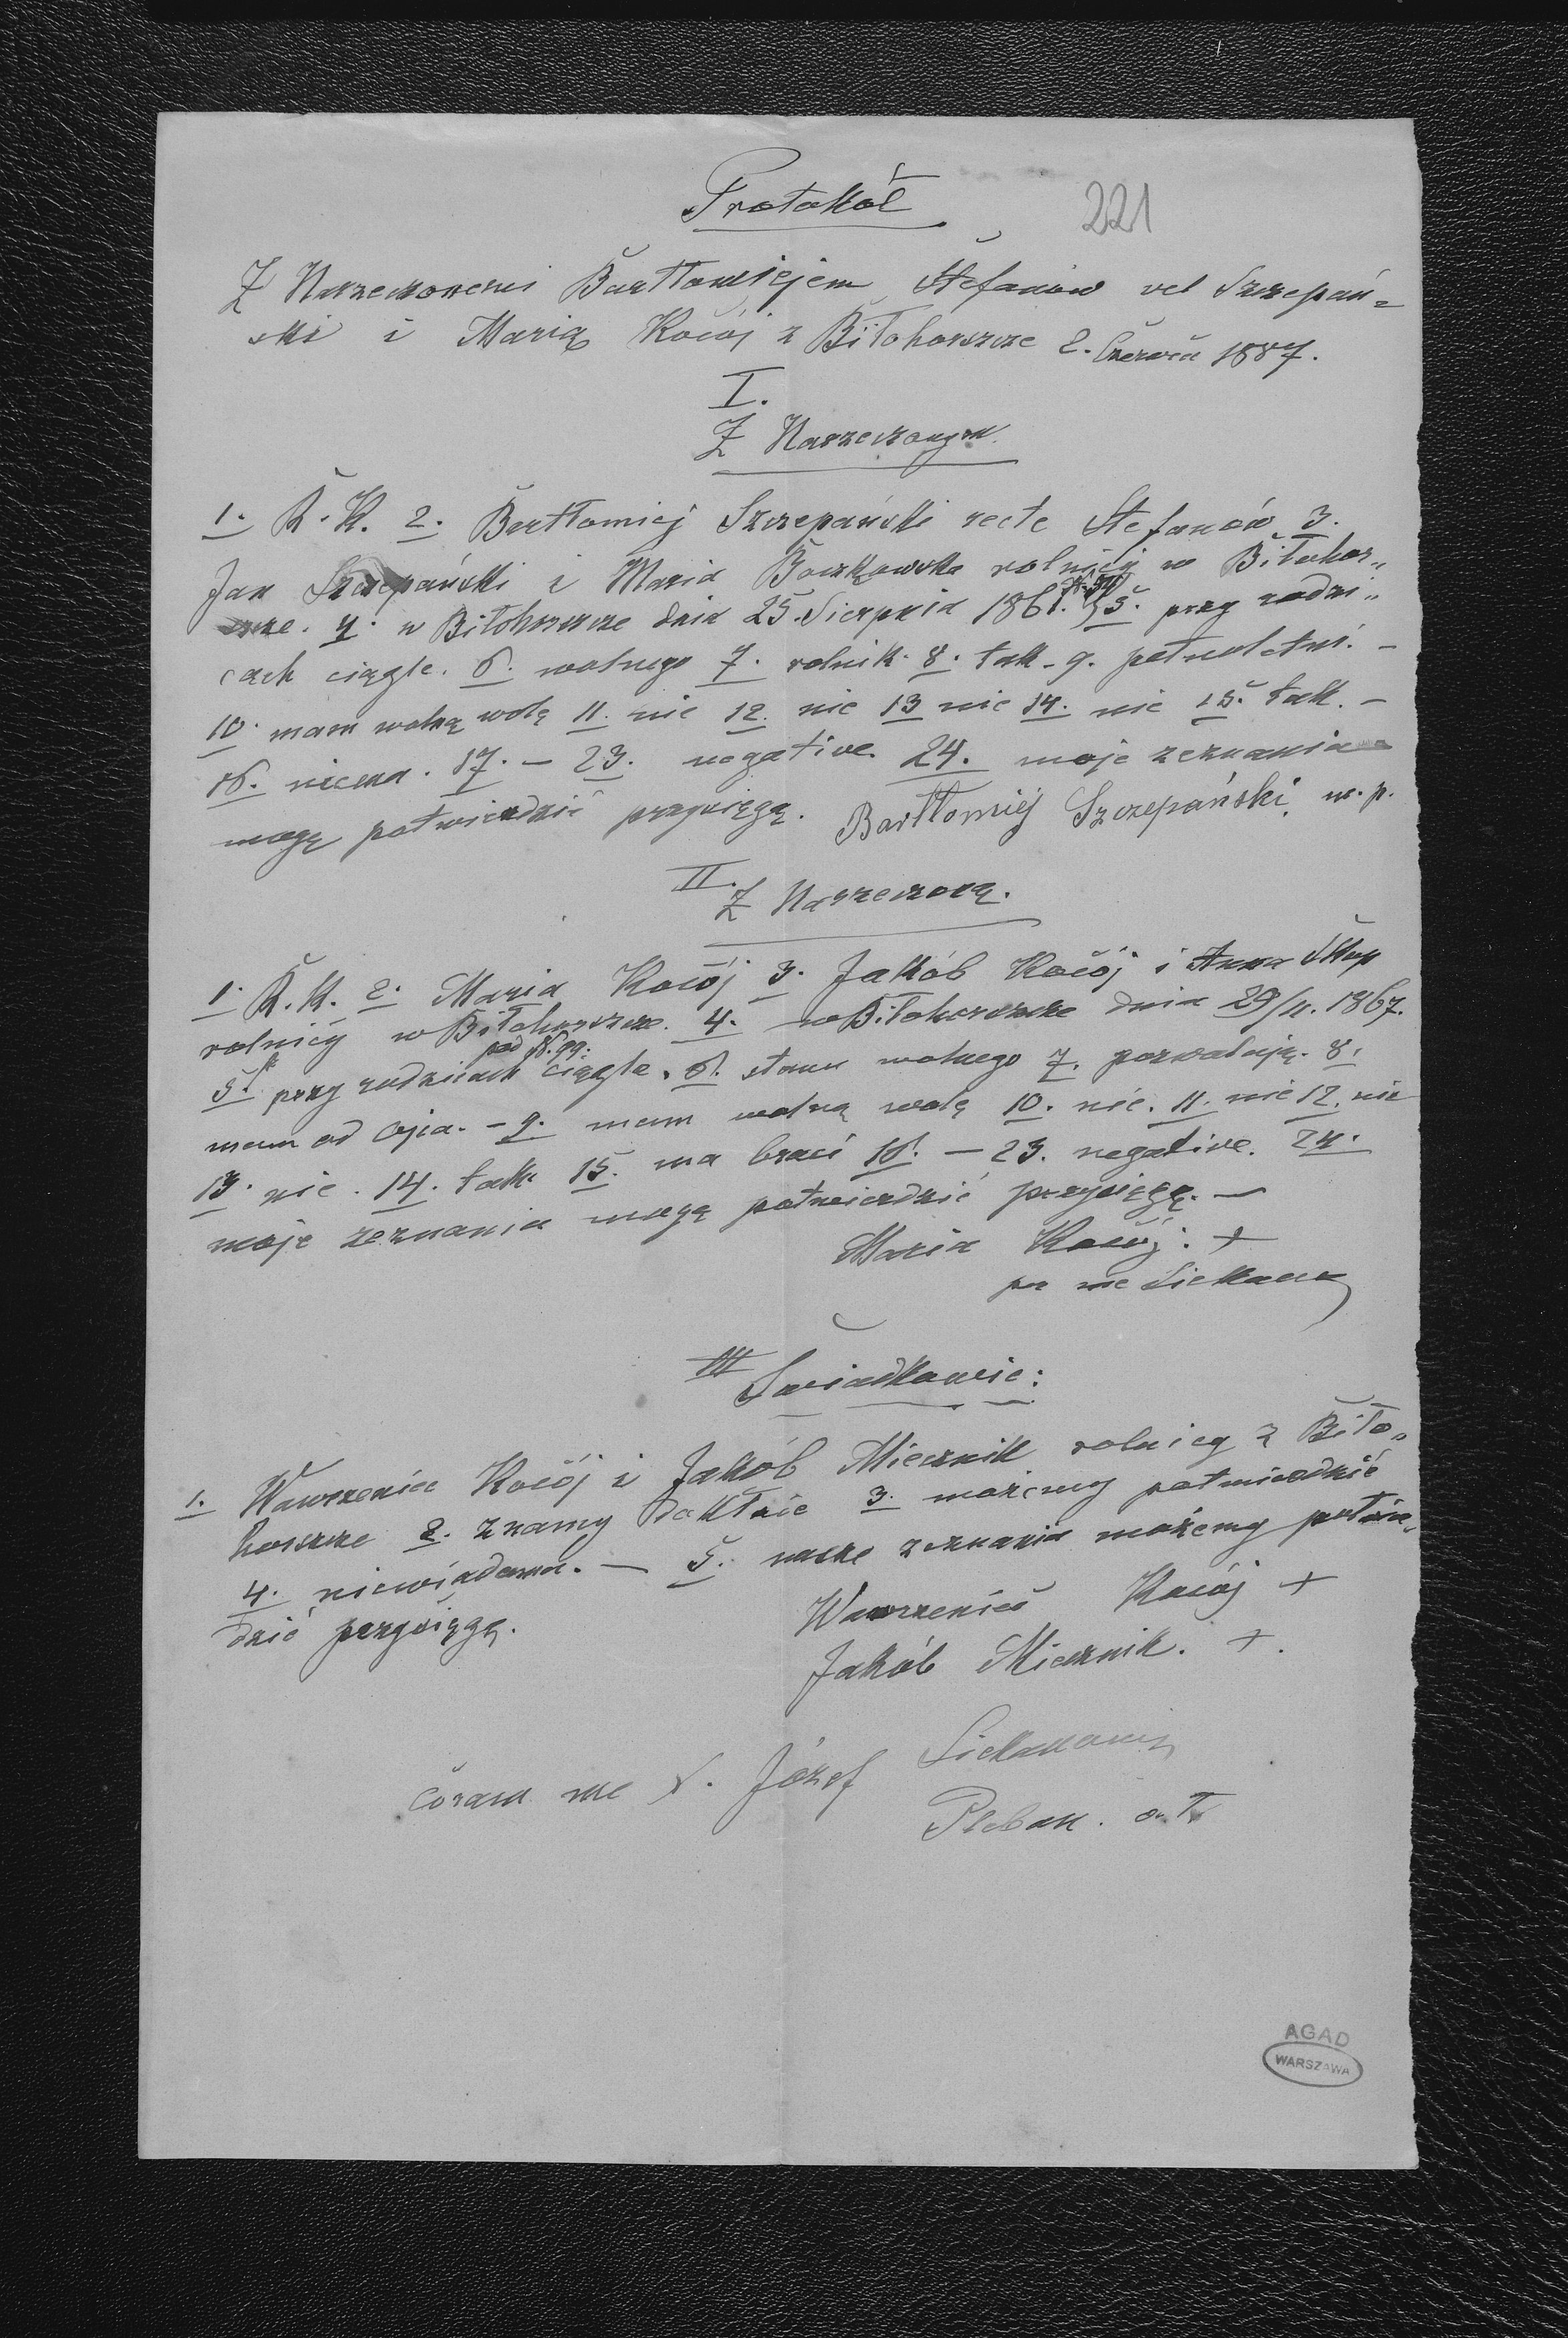 Protokół
221
Z Narzeczonemi Bartłomiejem Stefanów vel Szczepań-
ski i Marią Kocój z Biłohorszcze 2. Czerwca 1887.
I.
Z Narzeczonym
1. R. K. 2. Bartłomiej Szczepański recte Stefanów 3.
Jan Szczepański i Maria Boczkowska rolnicy w Biłohor-
szcze. 4. w Biłohorszcze dnia 25. Sierpnia 1861. 5. przy rodzi-
cach ciągle. 6. wolnego 7. rolnik. 8. tak. 9. pełnoletni. -
10. mam wolną wolę 11. nie 12. nie 13 nie 14. nie 15. tak. -
16. niema. 17. - 23. negative. 24. moje zeznania
mogę potwierdzić przysięgą. Bartłomiej Szczepański m. p.
II.
Z Narzeczoną.
1. R. K. 2. Maria Kocój 3. Jakób Kocój i Anna
rolnicy w Biłohorszcze. 4. w Biłohorszcze dnia 29/11. 1867.
pod N. 99.
5. przy rodzicach ciągle. 6. stanu wolnego 7. pozwalają. 8.
mam od ojca. - 9. mam wolną wolę 10. nie. 11. nie 12. nie
13. nie. 14. tak 15. ma braci 16. - 23. negative. 24.
moje zeznania mogę potwierdzić przysięgą. -
Maria Kocój. +
III
Świadkowie:
1. Wawrzeniec Kocój i Jakób Miecznik rolnicy z Biło-
horszcze 2. znamy 3. możemy potwierdzić
4. niewiadoma. - 5. nasze zeznania możemy potwier-
dzić przysięgą.
Wawrzeniec Kocój +
Jakób Miecznik. +.
coram me X. Józef
Pleban. o. ł.
AGAD
WARSZAWA